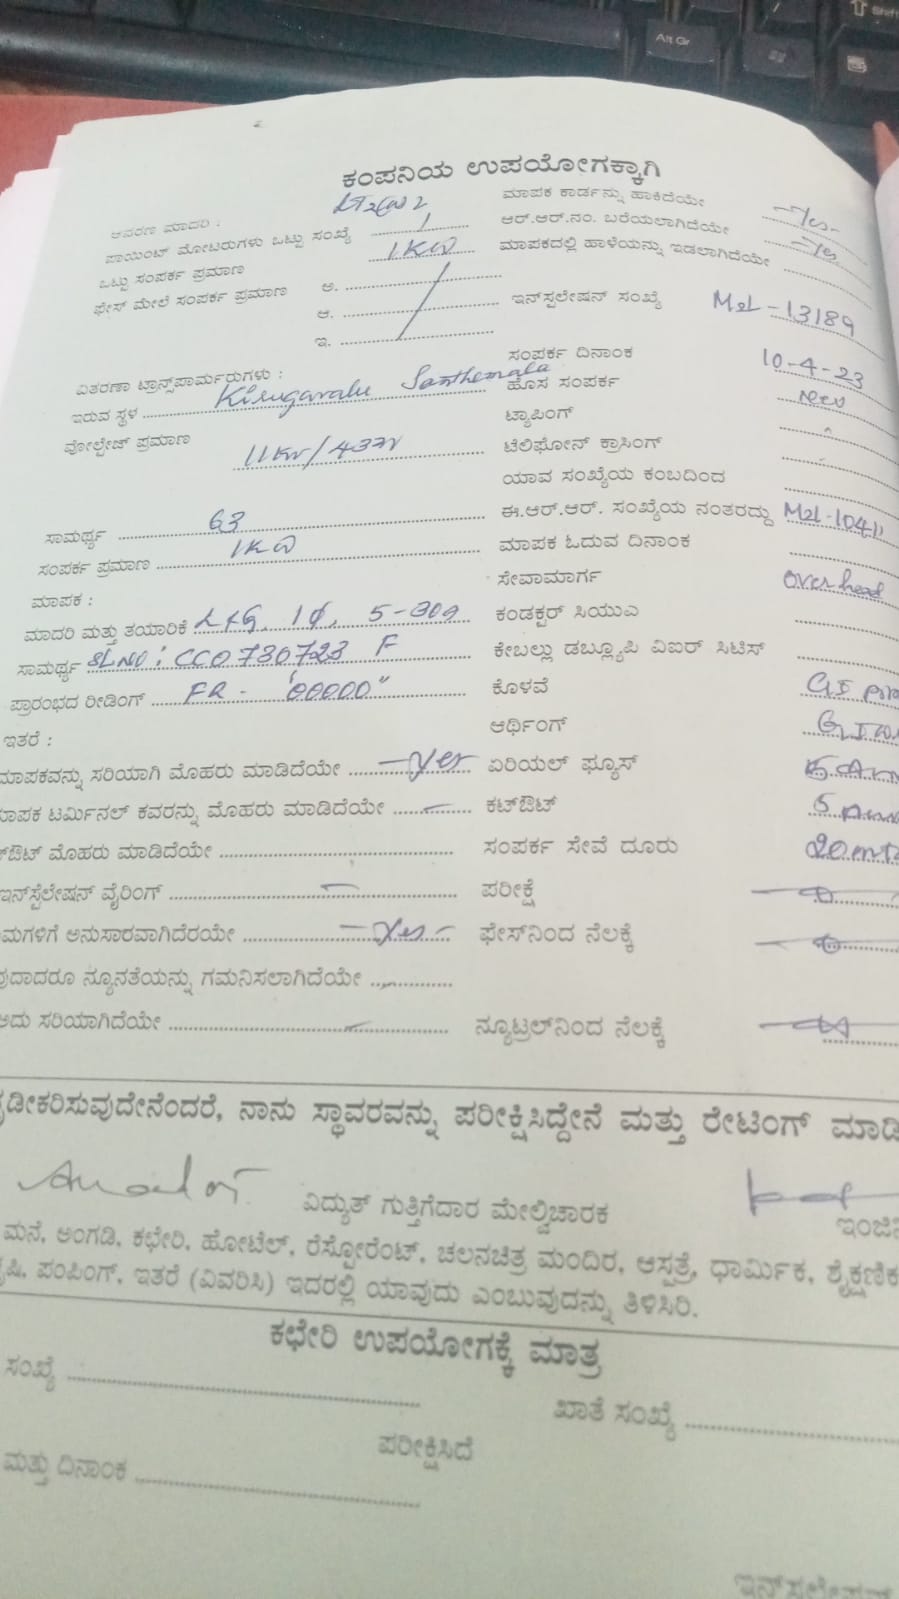 Alt Gr
Shift
ಕಂಪನಿಯ ಉಪಯೋಗಕ್ಕಾಗಿ
ಆವರಣ ಮಾದರಿ : ಮಾಪಕ ಕಾರ್ಡನ್ನು ಹಾಕಿದೆಯೇ Yes
ಪಾಯಿಂಟ್ ಮೋಟರುಗಳು ಒಟ್ಟು ಸಂಖ್ಯೆ 1 ಆರ್.ಆರ್.ನಂ. ಬರೆಯಲಾಗಿದೆಯೇ Yes
ಒಟ್ಟು ಸಂಪರ್ಕ ಪ್ರಮಾಣ 1KW ಮಾಪಕದಲ್ಲಿ ಹಾಳೆಯನ್ನು ಇಡಲಾಗಿದೆಯೇ
ಫೇಸ್ ಮೇಲೆ ಸಂಪರ್ಕ ಪ್ರಮಾಣ ಅ.
ಆ. ಇನ್‌ಸ್ಪಲೇಷನ್ ಸಂಖ್ಯೆ M2L-13189
ಇ.
ವಿತರಣಾ ಟ್ರಾನ್ಸ್‌ಪಾರ್ಮರುಗಳು : ಸಂಪರ್ಕ ದಿನಾಂಕ 10-4-23
ಇರುವ ಸ್ಥಳ Kirugavalu Santhemala ಹೊಸ ಸಂಪರ್ಕ new
ವೋಲ್ಟೇಜ್ ಪ್ರಮಾಣ 11KV/433V ಟ್ಯಾಪಿಂಗ್
ಟೆಲಿಫೋನ್ ಕ್ರಾಸಿಂಗ್
ಯಾವ ಸಂಖ್ಯೆಯ ಕಂಬದಿಂದ
ಸಾಮರ್ಥ್ಯ 63 ಈ.ಆರ್.ಆರ್. ಸಂಖ್ಯೆಯ ನಂತರದ್ದು M2L-10411
ಸಂಪರ್ಕ ಪ್ರಮಾಣ 1KW ಮಾಪಕ ಓದುವ ದಿನಾಂಕ
ಮಾಪಕ : ಸೇವಾಮಾರ್ಗ Overhead
ಮಾದರಿ ಮತ್ತು ತಯಾರಿಕೆ L&G, 1φ, 5-30a ಕಂಡಕ್ಟರ್ ಸಿಯುಎ
ಸಾಮರ್ಥ್ಯ SLNO: CCO730723 F ಕೇಬಲ್ಲು ಡಬ್ಲ್ಯೂಪಿ ವಿಐರ್ ಸಿಟಿಸ್
ಪ್ರಾರಂಭದ ರೀಡಿಂಗ್ FR - "00000" ಕೊಳವೆ GI
ಇತರೆ : ಆರ್ಥಿಂಗ್ GI
ಮಾಪಕವನ್ನು ಸರಿಯಾಗಿ ಮೊಹರು ಮಾಡಿದೆಯೇ Yes ಏರಿಯಲ್ ಫ್ಯೂಸ್
ಮಾಪಕ ಟರ್ಮಿನಲ್ ಕವರನ್ನು ಮೊಹರು ಮಾಡಿದೆಯೇ ಕಟ್‌ಔಟ್ 5
ಔಟ್ ಮೊಹರು ಮಾಡಿದೆಯೇ ಸಂಪರ್ಕ ಸೇವೆ ದೂರು 20 mts
ಇನ್‌ಸ್ಟೆಲೇಷನ್ ವೈರಿಂಗ್ ಪರೀಕ್ಷೆ
ಮಗಳಿಗೆ ಅನುಸಾರವಾಗಿದೆರಯೇ Yes ಫೇಸ್‌ನಿಂದ ನೆಲಕ್ಕೆ
ವುದಾದರೂ ನ್ಯೂನತೆಯನ್ನು ಗಮನಿಸಲಾಗಿದೆಯೇ
ಅದು ಸರಿಯಾಗಿದೆಯೇ ನ್ಯೂಟ್ರಲ್‌ನಿಂದ ನೆಲಕ್ಕೆ
ಡೀಕರಿಸುವುದೇನೆಂದರೆ, ನಾನು ಸ್ಥಾವರವನ್ನು ಪರೀಕ್ಷಿಸಿದ್ದೇನೆ ಮತ್ತು ರೇಟಿಂಗ್ ಮಾಡಿ
ವಿದ್ಯುತ್ ಗುತ್ತಿಗೆದಾರ ಮೇಲ್ವಿಚಾರಕ ಇಂಜಿನಿ
ಮನೆ, ಅಂಗಡಿ, ಕಛೇರಿ, ಹೋಟೆಲ್, ರೆಸ್ಪೋರೆಂಟ್, ಚಲನಚಿತ್ರ ಮಂದಿರ, ಆಸ್ಪತ್ರೆ, ಧಾರ್ಮಿಕ, ಶೈಕ್ಷಣಿಕ
ಷಿ, ಪಂಪಿಂಗ್, ಇತರೆ (ವಿವರಿಸಿ) ಇದರಲ್ಲಿ ಯಾವುದು ಎಂಬುವುದನ್ನು ತಿಳಿಸಿರಿ.
ಕಛೇರಿ ಉಪಯೋಗಕ್ಕೆ ಮಾತ್ರ
ಸಂಖ್ಯೆ ಖಾತೆ ಸಂಖ್ಯೆ
ಪರೀಕ್ಷಿಸಿದೆ
ಮತ್ತು ದಿನಾಂಕ